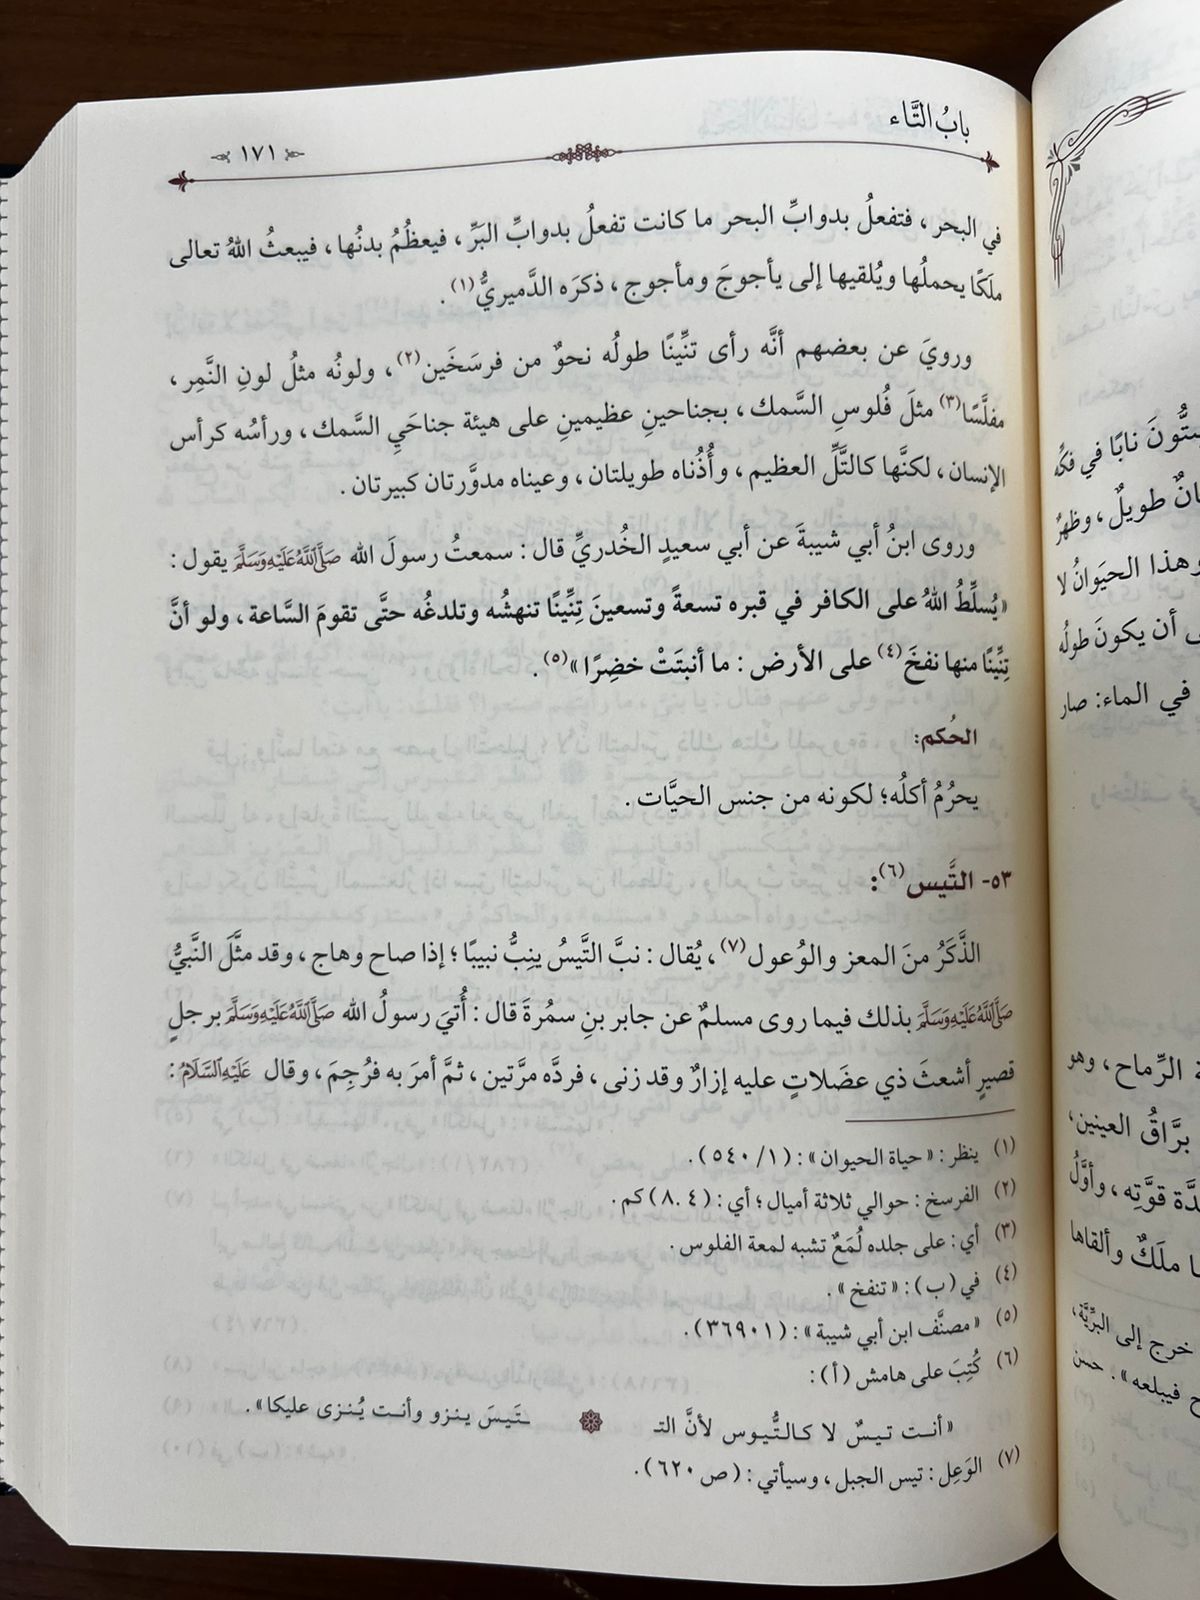 بابُ التَّاء
١٧١
في البحر ، فتفعلُ بدوابِّ البحر ما كانت تفعلُ بدوابِّ البَرِّ ، فيعظُمُ بدنُها ، فيبعثُ اللهُ تعالى
ملَكًا يحملُها ويُلقيها إلى يأجوجَ ومأجوج ، ذكرَه الدَّميريُّ(١) .
ورويَ عن بعضهم أنَّه رأى تنِّينًا طولُه نحوٌ من فرسَخَين(٢) ، ولونُه مثلُ لونِ النَّمِر ،
مفلَّسًا(٣) مثلَ فُلوسِ السَّمك ، بجناحينِ عظيمينِ على هيئة جناحَيِ السَّمك ، ورأسُه كرأس
الإنسان ، لكنَّها كالتَّلِّ العظيم ، وأُذُناه طويلتان ، وعيناه مدوَّرتان كبيرتان .
وروى ابنُ أبي شيبةَ عن أبي سعيدٍ الخُدريِّ قال : سمعتُ رسولَ الله صَلَّى اللَّهُ عَلَيْهِ وَسَلَّمَ يقول :
«يُسلِّطُ اللهُ على الكافر في قبره تسعةً وتسعينَ تِنِّينًا تنهشُه وتلدغُه حتَّى تقومَ السَّاعة ، ولو أنَّ
تِنِّينًا منها نفخَ(٤) على الأرض : ما أنبتَتْ خضِرًا»(٥) .
الحُكم:
يحرُمُ أكلُه؛ لكونه من جنس الحيَّات .
٥٣- التَّيس(٦):
الذَّكَرُ منَ المعز والوُعول(٧) ، يُقال : نبَّ التَّيسُ ينِبُّ نبيبًا ؛ إذا صاح وهاج ، وقد مثَّلَ النَّبيُّ
صَلَّى اللَّهُ عَلَيْهِ وَسَلَّمَ بذلك فيما روى مسلمٌ عن جابر بنِ سمُرةَ قال : أُتيَ رسولُ الله صَلَّى اللَّهُ عَلَيْهِ وَسَلَّمَ برجلٍ
قصيرٍ أشعثَ ذي عضَلاتٍ عليه إزارٌ وقد زنى ، فردَّه مرَّتين ، ثمَّ أمرَ به فرُجِمَ ، وقال عَلَيْهِ السَّلَامُ :
(١) ينظر : «حياة الحيوان» : (١/ ٥٤٠).
(٢) الفرسخ : حوالي ثلاثة أميال ؛ أي : (٨٠٤) كم .
(٣) أي : على جلده لُمَعٌ تشبه لمعة الفلوس .
(٤) في (ب) : «تنفخ» .
(٥) «مصنَّف ابن أبي شيبة» : (٣٦٩٠١).
(٦) كُتِبَ على هامش (أ) :
«أنـت تـيسٌ لا كـالتُّيـوس لأنَّ التـ ـتَيـسَ يـنزو وأنـت يُـنزى عليكا» .
(٧) الوَعِل : تيس الجبل ، وسيأتي : (ص ٦٢٠).
ستُّونَ نابًا في فكِّه
طويلٌ ، وظهرٌ
وهذا الحيَوانُ لا
أن يكونَ طولُه
في الماء: صار
الرِّماح ، وهو
برَّاقُ العينين،
قوَّتِه ، وأوَّلُ
ملَكٌ وألقاها
خرج إلى البرِّيَّة،
فيبلعه» . حسن